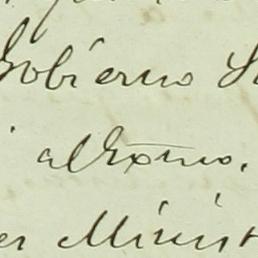 Gobierno S
al Exmo.
er Minist